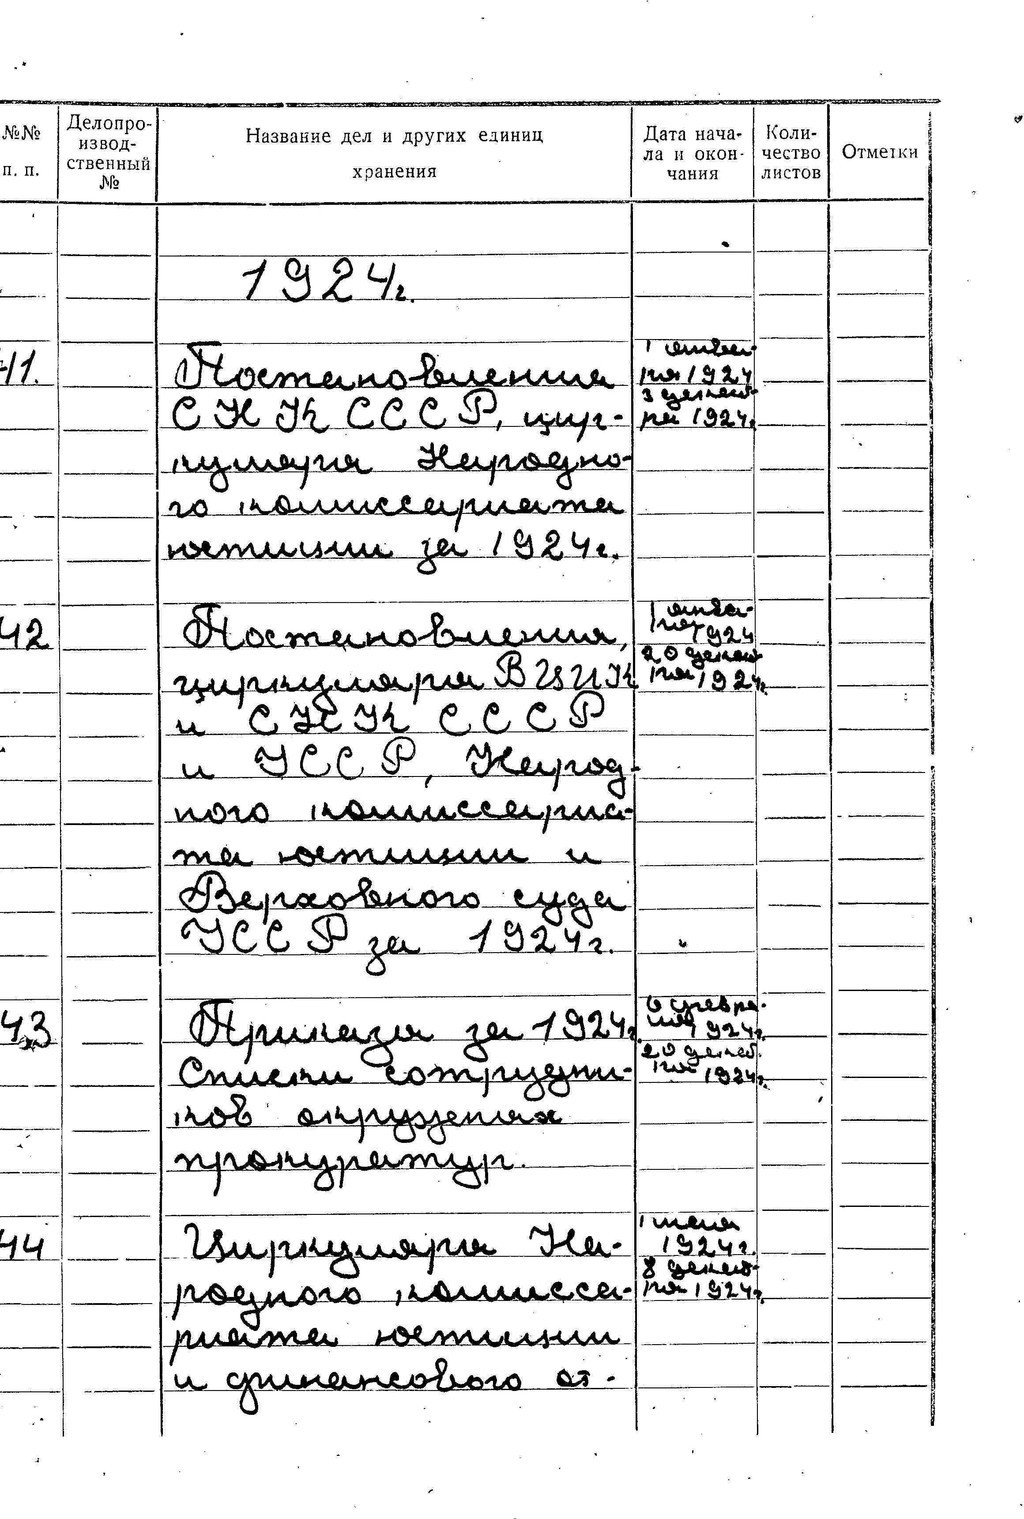 №№ п. п.
Делопро-
извод-
ственный
№
Название дел и других единиц
хранения
Дата нача-
ла и окон-
чания
Коли-
чество
листов
Отметки
1924г.
41.
Постановления
СНК СССР, цир-
куляры Народно-
го комиссариата
юстиции за 1924г.
1 янва-
ря 1924
3 декаб-
ря 1924г.
42
Постановления,
циркуляры ВЦИК
и СНК СССР
и УССР, Народ-
ного комиссариа-
та юстиции и
Верховного суда
УССР за 1924г.
1 янва-
ря 1924
20 декаб-
ря 1924г.
43
Приказы за 1924г.
Списки сотрудни-
ков окружных
прокуратур.
6 февра-
ля 1924г.
20 декаб.
ря 1924г.
44
Циркуляры На-
родного комисса-
риата юстиции
и финансового от-
1924г.
8 декаб-
ря 1924г.